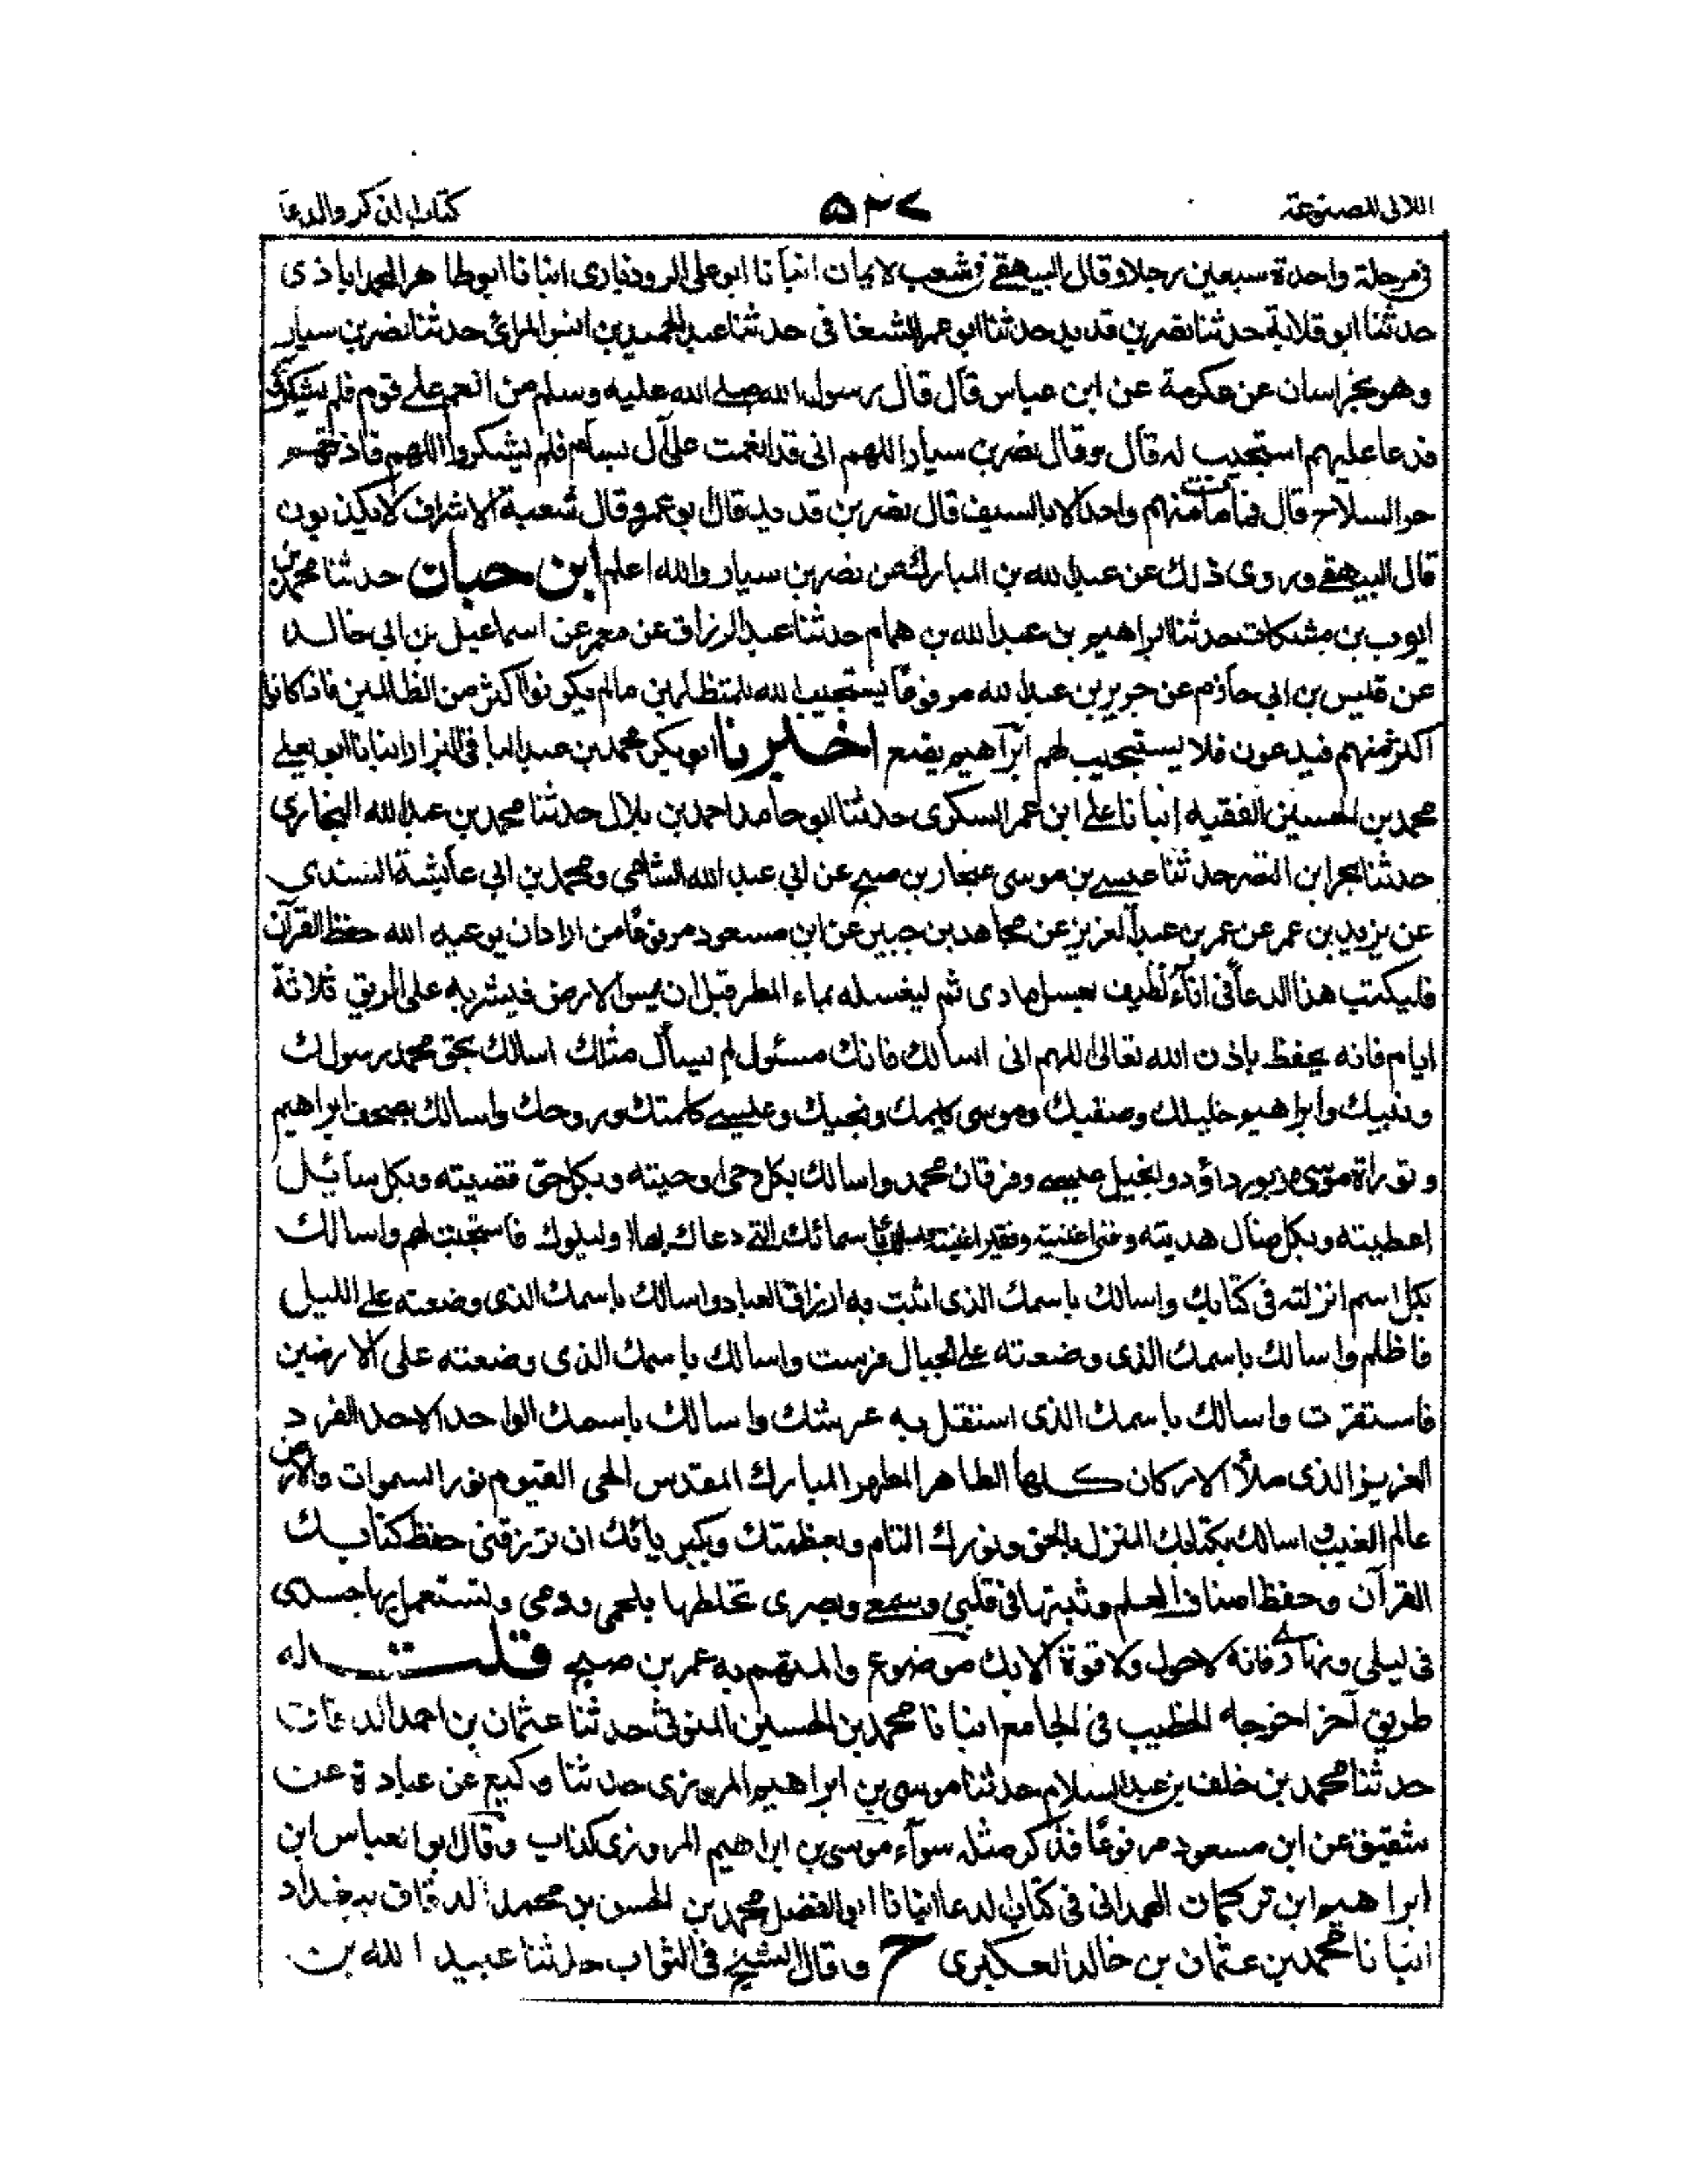 اللآلى المصنوعة
۵۳۷
كتاب الذكر والدعا
فى مرحلة واحدة سبعين رجلا وقال البيهقے فى شعب الايمان انبأنا ابو على الروذبارى انبانا ابو طاهر المحمداباذى
حدثنا ابو قلابة حدثنا نصر بن قديد حدثنا ابو عمر الشغافى حدثنا عبد الحميد بن انس المرائى حدثنا نضر بن سيار
وهو بخراسان عن عكرمة عن ابن عباس قال قال رسول الله صلے الله عليه وسلم من انعم علے قوم فلم يشكروه
فدعا عليهم استجيب له قال وقال نضر بن سيار اللهم انى قد انعمت على آل بسام فلم يشكروا اللهم فاذقهم
حر السلاح قال فما مات منهم واحد الا بالسيف قال نضر بن قديد قال بو عمرو قال شعبة الاشراف لا يكذبون
قال البيهقے وروى ذلك عن عبد الله بن المبارك عن نضر بن سيار والله اعلم ابن حبان حدثنا محمد بن
ايوب بن مشكان حدثنا ابراهيم بن عبد الله بن همام حدثنا عبد الرزاق عن معمر عن اسماعيل بن ابى خالد
عن قيس بن ابى حازم عن جرير بن عبد الله مرفوعًا يستجيب الله للمتظلمين مالم يكونوا اكثر من الظالمين فاذا كانوا
اكثر منهم فيدعون فلا يستجيب لهم ابراهيم يضع اخبرنا ابو بكر محمد بن عبد الباقى البزار انبانا ابو يعلے
محمد بن الحسين الفقيه انبأنا علے ابن عمر السكرى حدثنا ابو حامد احمد بن بلال حدثنا محمد بن عبد الله البخارى
حدثنا بحر ابن النضر حدثنا عيسے بن موسى غنجار بن صبح عن ابى عبد الله الشامى ومحمد بن ابى عائشة السندى
عن يزيد بن عمر عن عمر بن عبد العزيز عن مجاهد بن جبير عن ابن مسعود مرفوعًا من اراد ان يوعيه الله حفظ القرآن
فليكتب هذا الدعأ فى انآء نظيف بعسل ماذى ثم ليغسله بماء المطر قبل ان يمس الارض فيشربه على الريق ثلاثة
ايام فانه يحفظ باذن الله تعالى اللهم انى اسالك فانك مسئول لم يسأل مثلك اسالك بحق محمد رسولك
ونبيك وابراهيم خليلك وصفيك وموسى كليمك ونجيك وعيسے كلمتك وروحك واسالك بصحف ابراهيم
وتوراة موسى وزبور داؤد وانجيل عيسے وفرقان محمد واسالك بكل وحى اوحيته وبكل حق قضيته وبكل سائل
اعطيته وبكل ضال هديته وغنى اغنيته وفقير اغنيته واسالك باسمائك التے دعاك بها اوليائك فاستجبت لهم واسالك
بكل اسم انزلته فى كتابك واسالك باسمك الذى اثبت به ارزاق العباد واسالك باسمك الذى وضعته علے الليل
فاظلم واسالك باسمك الذى وضعته علے الجبال فرست واسالك باسمك الذى وضعته على الارضين
فاستقرت واسالك باسمك الذى استقل به عرشك واسالك باسمك الواحد الاحد الفرد
العزيز الذى ملأ الاركان كلها الطاهر المطهر المبارك المقدس الحى القيوم نور السموات والارض
عالم الغيب اسالك بكتابك المنزل بالحق ونورك التام وبعظمتك وبكبريائك ان ترزقنى حفظ كتابك
القرآن وحفظ اصناف العلم وثبتها فى قلبى وسمعے وبصرى تخلطها بلحمى ودمى وتستعمل بها جسدى
فى ليلى ونهارى فانه لا حول ولا قوة الا بك موضوع والمتهم به عمر بن صبح قلت له
طريق آخر اخرجه الخطيب فى الجامع انبانا محمد بن الحسين المتوثى حدثنا عثمان بن احمد الدقاق
حدثنا محمد بن خلف بن عبد السلام حدثنا موسى بن ابراهيم المروزى حدثنا وكيع عن عبادة عن
شقيق عن ابن مسعود مرفوعًا فذكر مثله سوآء موسى بن ابراهيم المروزى كذاب وقال ابو العباس ابن
ابراهيم ابن تركمان الهمدانى فى كتاب الدعا انبانا ابو الفضل محمد بن الحسن بن محمد الدقاق ببغداد
انبانا محمد بن عثمان بن خالد العكبرى ح وقال الشيخ فى الثواب حدثنا عبيد الله بن